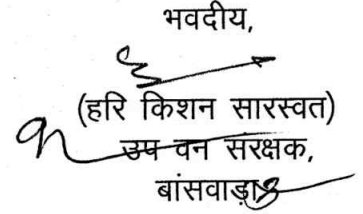 भवदीय,
(हरि किशन सारस्वत)
उप वन संरक्षक,
बांसवाड़ा